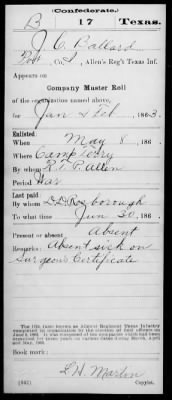 (Confederate.)
B 17 Texas.
J. C. Ballard
Pvt, Co. I, Allen's Reg't Texas Inf.
Appears on
Company Muster Roll
of the organization named above,
for Jan & Feb, 1863.
Enlisted:
When May 8, 186 .
Where Camp Terry
By whom R. T. P. Allen
Period War
Last paid:
By whom D. D. Roxborough
To what time Jun 30, 186 .
Present or absent Absent
Remarks: Absent sick on
Surgeons Certificate
The 17th (also known as Allen's) Regiment Texas Infantry
Book mark:
L H Martin
(642) Copyist.